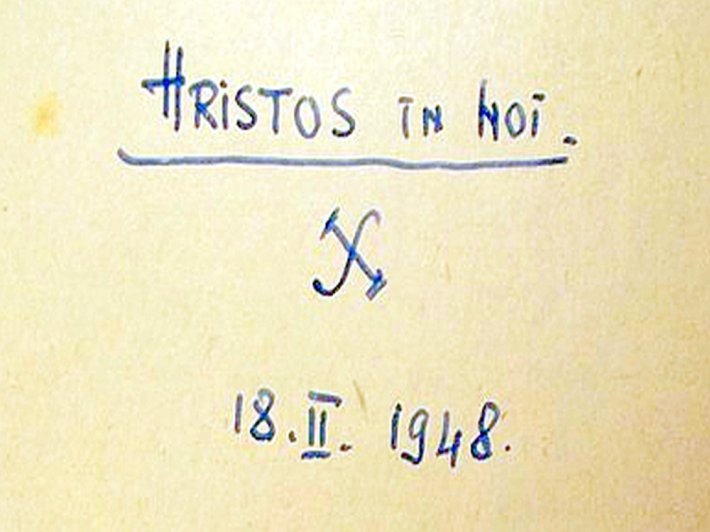 HRiSTOS īN NOī.
X
18.II. 1948.